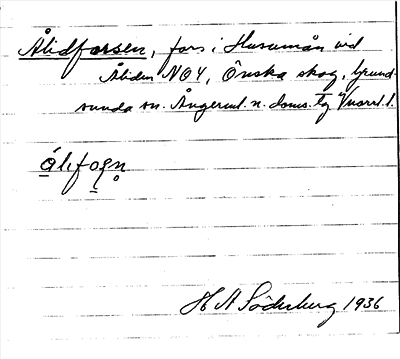 Ålidforsen, fors i Husumån vid
Åliden NO4, Önska skog, Grund-
sunda sn. Ångerml. n. doms.
álıfoṣn̥
H A Söderberg 1936